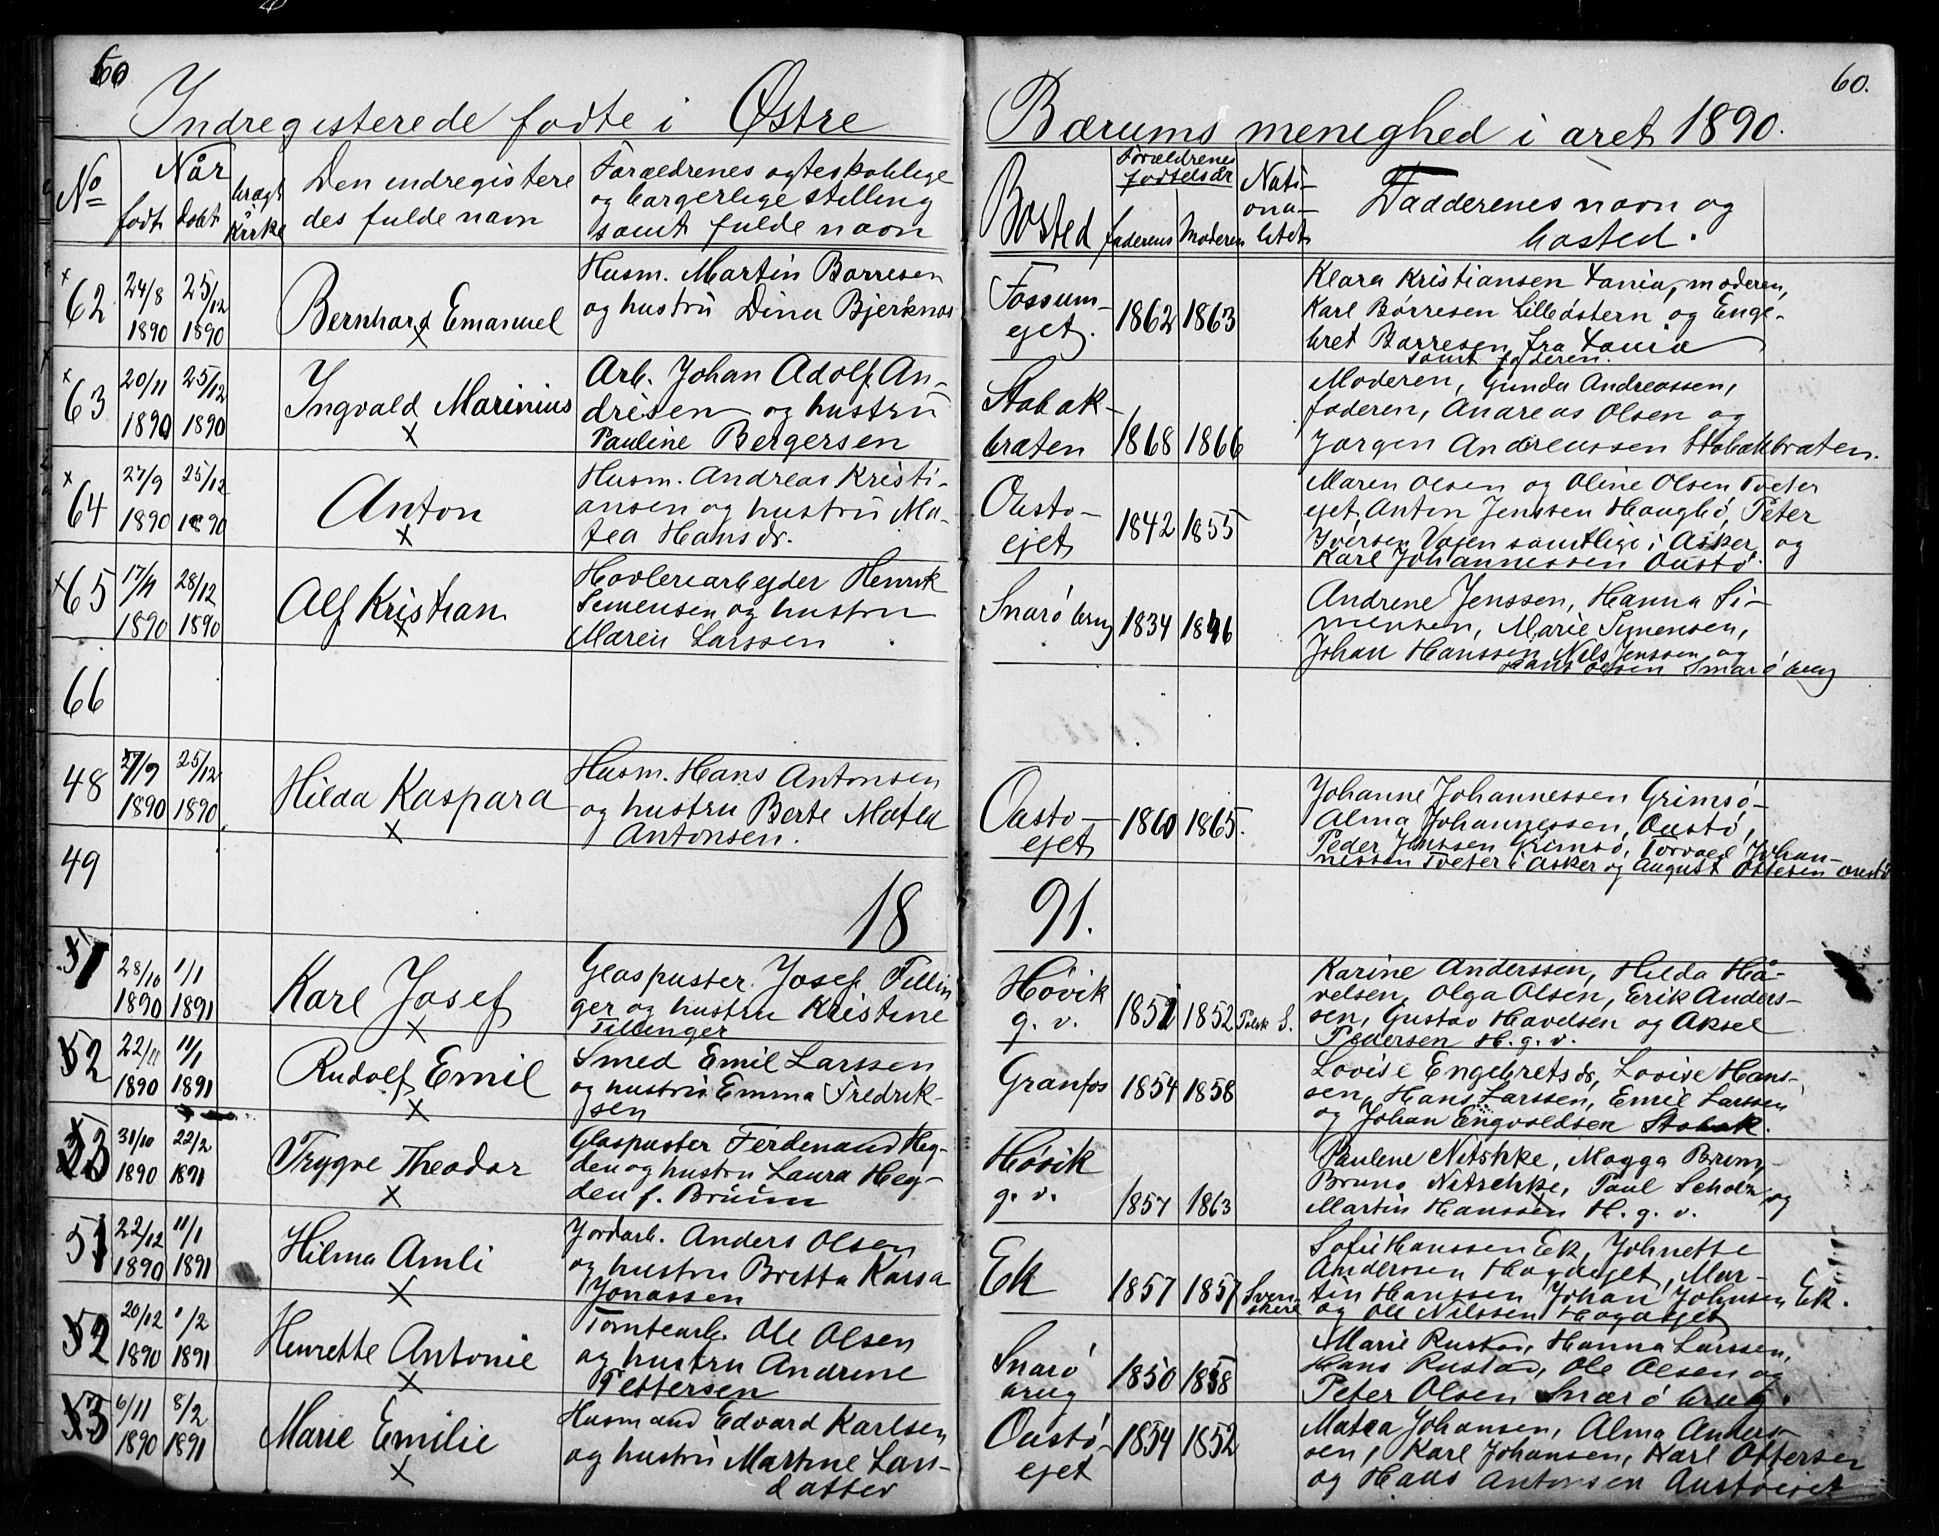 60
60.
Indregisterede fødte i Østre Bærums menighed i året 1890.
No
Når
født
døbt
bragt i kirke
Den indregistere
des fulde navn
Forældrenes ægteskabelige
og borgerlige stilling
samt fulde navn
Bosted
Forældrenes
fødselsår
faderens
Moderen
Nati-
ona-
litet
Fadderenes navn og
bosted.
62
24/8
1890
25/12
1890
Bernhard Emanuel
Husm. Martin Børresen
og hustru Dina Bjerknæs
Fossum-
ejet.
1862
1863
Klara Kristiansen Tania, moderen,
Karl Børresen Lilleøstern og Enge-
bret Børresen fra Tania
samt faderen.
63
20/11
1890
25/12
1890
Ingvald Marinius
Arb. Johan Adolf An-
dresen og hustru
Pauline Bergersen
Stabæk-
bråten
1868
1866
Moderen, Gunda Andreassen,
faderen, Andreas Olsen og
Jørgen Andreassen Stabækbråten.
64
27/9
1890
25/12
1890
Anton
Husm. Andreas Kristi-
ansen og hustru Ma-
tea Hansdr.
Oustø-
ejet
1842
1855
Maren Olsen og Oline Olsen Tveter
ejet, Anton Jenssen Haugbø, Peter
Iversen Vøjen samtlige i Asker og
Karl Johannessen Oustø.
65
17/11
1890
28/12
1890
Alf Kristian
Høvleriarbejder Henrik
Simensen og hustru
Maren Larssen
Snarøbrug
1834
1846
Andrine Jenssen, Hanna Si-
mensen, Marie Simensen,
Johan Hanssen Nils Jenssen og
Hans Olssen Snarøbrug
66
48
27/9
1890
25/12
1890
Hilda Kaspara
Husm. Hans Antonsen
og hustru Berte Matea
Antonsen.
Oustø-
ejet
1860
1865.
Johanne Johannessen Grimsø-
Alma Johannessen, Oustø,
Peder Jenssen Grimsø, Torvald Johan-
nessen Tveter i Asker og August Ottesen Oustø
49
1891.
51
28/10
1890
1/1
1891
Karl Josef
Glaspuster. Josef Tillin
ger og hustru Kristine
Tillinger
Høvik
g. v.
1851
1852
Tysk S.
Karine Anderssen, Hilda Hå-
velsen, Olga Olsen, Erik Anders-
sen, Gustav Havelsen og Aksel
Pedersen H. g. v.
52
22/11
1890
11/1
1891
Rudolf Emil
Smed Emil Larssen
og hustru Emma Fredrik-
sen
Granfos
1854
1858
Lovise Engebretsdr, Lovise Hans-
sen, Hans Larssen, Emil Larssen
og Johan Engvoldsen Stabæk.
53
31/10
1890
22/2
1891
Trygve Theodor
Glaspuster Ferdinand Heg-
den og hustru Laura Heg-
den f. Bruun
Høvik
g. v.
1857
1863
Pauline Nitshke, Magga Brun,
Bruno Nitschke, Paul Scholz og
Martin Hanssen H. g. v.
51
22/12
1890
11/1
1891
Hilma Amli
Jordarb. Anders Olsen
og hustru Britta Kajsa
Jonassen
Ek
1857
1857
Sven-
skere
Sofie Hanssen Ek, Johnette
Anderssen Hagaejet, Mar-
tin Hanssen, Johan Johnsen Ek.
og Ole Nilssen Hagaejet
52
20/12
1890
1/2
1891
Henrette Antonie
Tomtearb. Ole Olsen
og hustru Andrine
Pettersen
Snarø
brug
1850
1858
Marie Rustad, Hanna Larssen,
Hans Rustad, Ole Olsen og
Peter Olsen Snarøbrug.
53
6/11
1890
8/2
1891
Marie Emilie
Husmand Edvard Karlsen
og hustru Martine Lars-
datter
Oustø-
ejet
1854
1852
Matea Johansen, Alma Anders-
sen, Karl Johansen, Karl Ottersen
og Hans Antonsen Austøejet